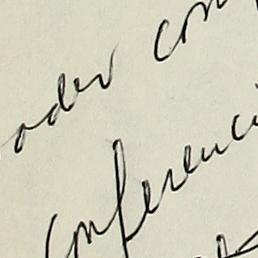 oder con
conferenci